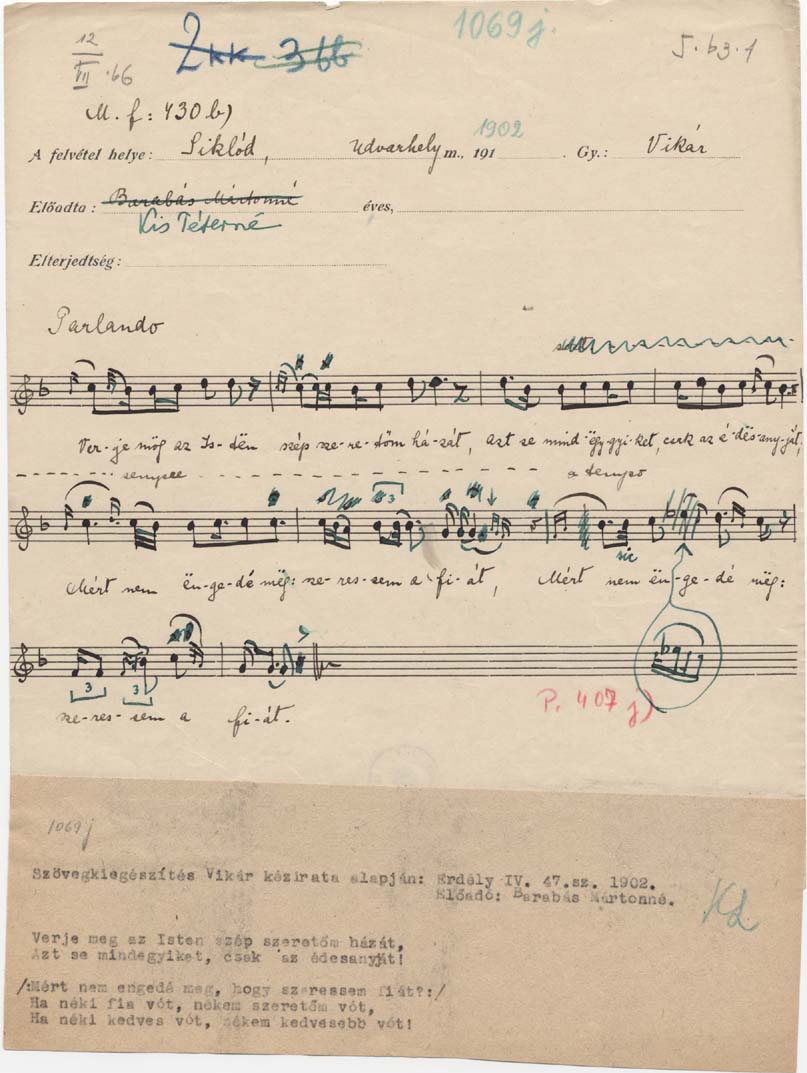 12
VII .66
Zkk 366
1069 j.
5. b3. 1
M. f: 430 b)
A felvétel helye: Siklód, Udvarhely m., 191 1902 . Gy.: Vikár
Előadta: Barabás Mártonné éves,
Kis Péterné
Elterjedtség:
Parlando
Ver-je mög az Is-tën szép sze-re-tőm há-zát, azt se mind-ëgy-gyi-ket, csak az é-dës-any-ját,
a tempo
3
sic
Mért nem ën-ge-dé mëg: sze-res-sem a fi-át, Mért nem ën-ge-dé mëg:
3 3
sze-res-sem a fi-át.
P. 407 j)
1069 j
Szövegkiegészítés Vikár kézirata alapján: Erdély IV. 47.sz. 1902.
Előadó: Barabás Mártonné.
Verje meg az Isten szép szeretőm házát,
Azt se mindegyiket, csak az édesanyját!
/:Mért nem engedé meg, hogy szeressem fiát?:/
Ha néki fia vót, nékem szeretőm vót,
Ha néki kedves vót, nékem kedvesebb vót!